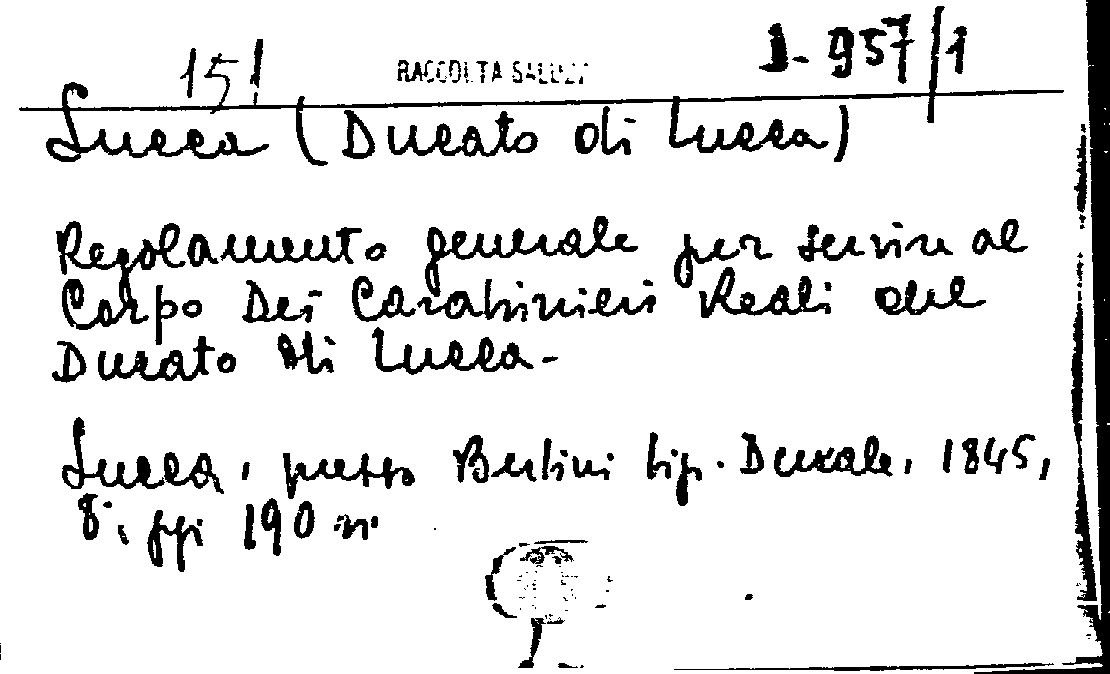 151 RACCOLTA SALUZZ J. 957/1
Lucca (Ducato di Lucca)
Regolamento generale per servire al
Corpo Dei Carabinieri Reali del
Ducato di Lucca -
Lucca, presso Bertini tip. Ducale, 1845,
8°, pp. 190 n.